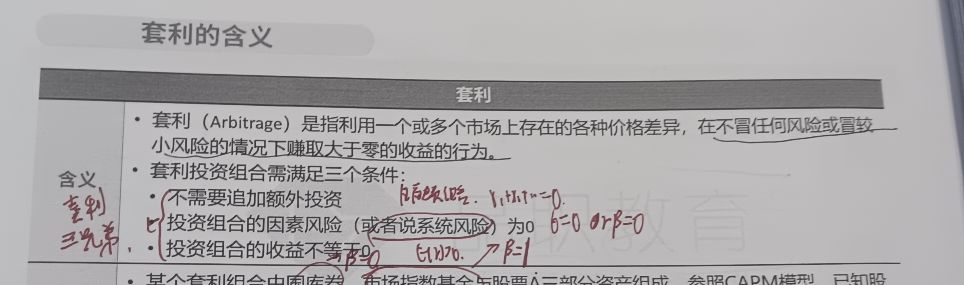 套利的含义
套利
• 套利（Arbitrage）是指利用一个或多个市场上存在的各种价格差异，在不冒任何风险或冒较
小风险的情况下赚取大于零的收益的行为。
• 套利投资组合需满足三个条件：
含义
• 不需要追加额外投资
=0.
套利
三兄弟.
• 投资组合的因素风险（或者说系统风险）为0 б=0 or β=0
• 投资组合的收益不等于0
β=0
E(r)>0. β=1
教育
• 某个套利组合由国库券、市场指数基金与股票A三部分资产组成，参照CAPM模型，已知股